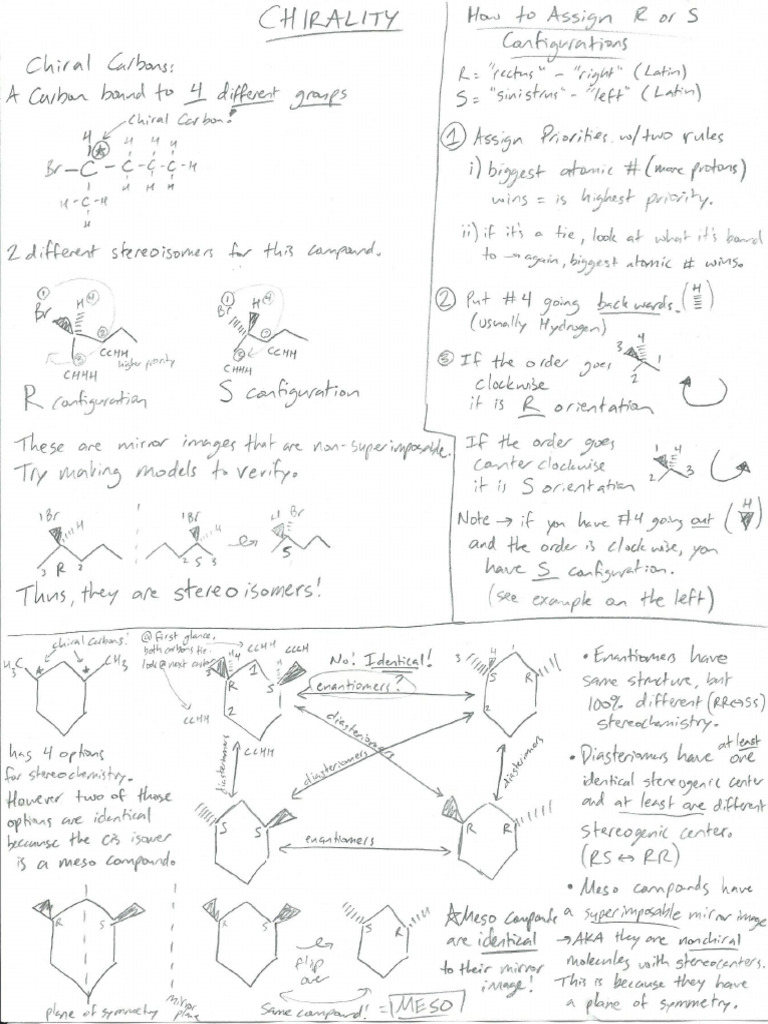 CHIRALITY
Chiral Carbons:
A Carbon bound to 4 different groups
Chiral Carbon!
H H H H
Br-C-C-C-C-H
H H H
H-C-H
H
2 different stereoisomers for this compound.
1 H 4
Br
2
CCHH
higher priority
3
CHHH
R configuration
1 H 4
Br
2
CCHH
3
CHHH
S configuration
These are mirror images that are non-superimposable.
Try making models to verify.
1Br H
3 R 2
1Br H
2 S 3
H Br
S
Thus, they are stereoisomers!
How to Assign R or S
Configurations
R = "rectus" - "right" (Latin)
S = "sinistrus" - "left" (Latin)
1 Assign Priorities w/ two rules
i) biggest atomic # (more protons)
wins = is highest priority.
ii) if it's a tie, look at what it's bound
to → again, biggest atomic # wins.
2 Put #4 going backwards. (H)
(usually Hydrogen)
3 If the order goes
clockwise
it is R orientation
3 4
2 1
If the order goes
counterclockwise
it is S orientation
1 4
2 3
Note → if you have #4 going out (H)
and the order is clockwise, you
have S configuration.
(see example on the left)
chiral carbons!
H3C CH3
has 4 options
for stereochemistry.
However two of those
options are identical
becuause the cis isomer
is a meso compound.
@ first glance,
both carbons tie.
look @ next carbon
CCHH
CCHH
CCHH
CCCH
3 H4 1
R S
2
No! Identical!
enantiomers?
3 4 1
S R
2
diasteriomers
diasteriomers
diasteriomers
diasteriomers
S S
enantiomers
R R
• Enantiomers have
same structure, but
100% different (RR↔SS)
stereochemistry.
• Diasteriomers have at least one
identical stereogenic center
and at least one different
stereogenic center.
(RS ↔ RR)
• Meso compounds have
a superimposable mirror image
→ AKA they are nonchiral
molecules with stereocenters.
This is because they have
a plane of symmetry.
R S
plane of symmetry
mirror
plane
R S
flip
over
S R
Same compound! = MESO
☆Meso compounds
are identical
to their mirror
image!